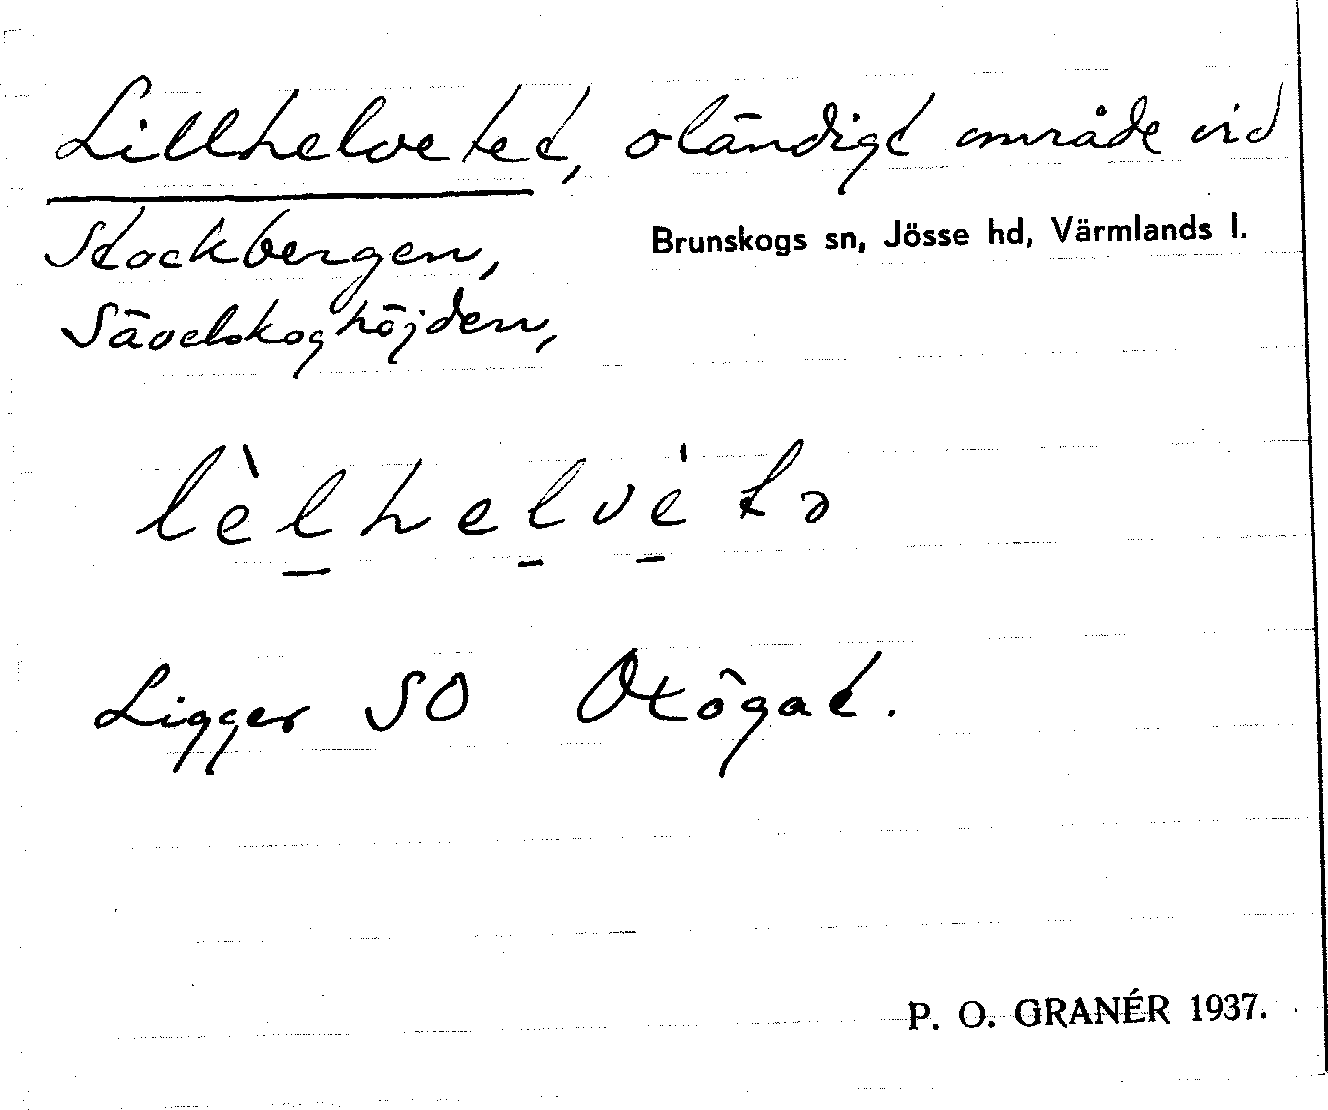 Lillhelvetet, oländigt område vid
Stockbergen,
Brunskogs sn, Jösse hd, Värmlands l.
Sävelskoghöjden,
lèlhelvétə
Ligger SO Otögat.
P. O. GRANÉR 1937.